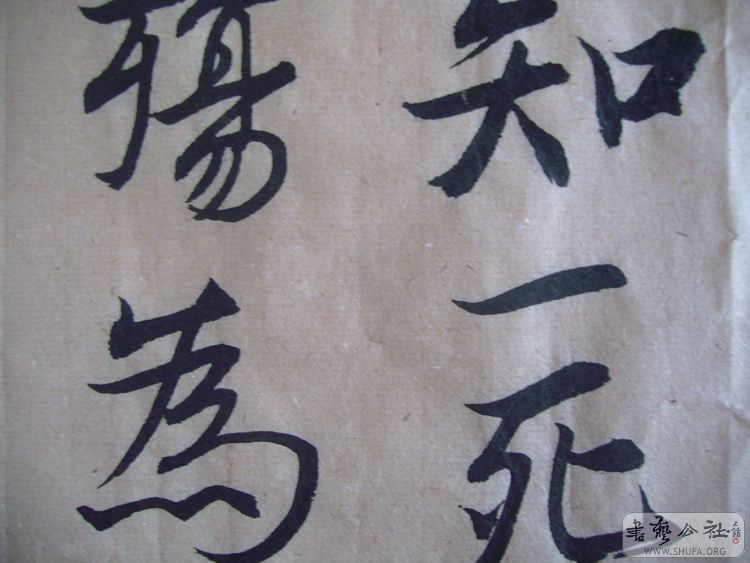 知一死
殤為
書藝公社
WWW.SHUFA.ORG